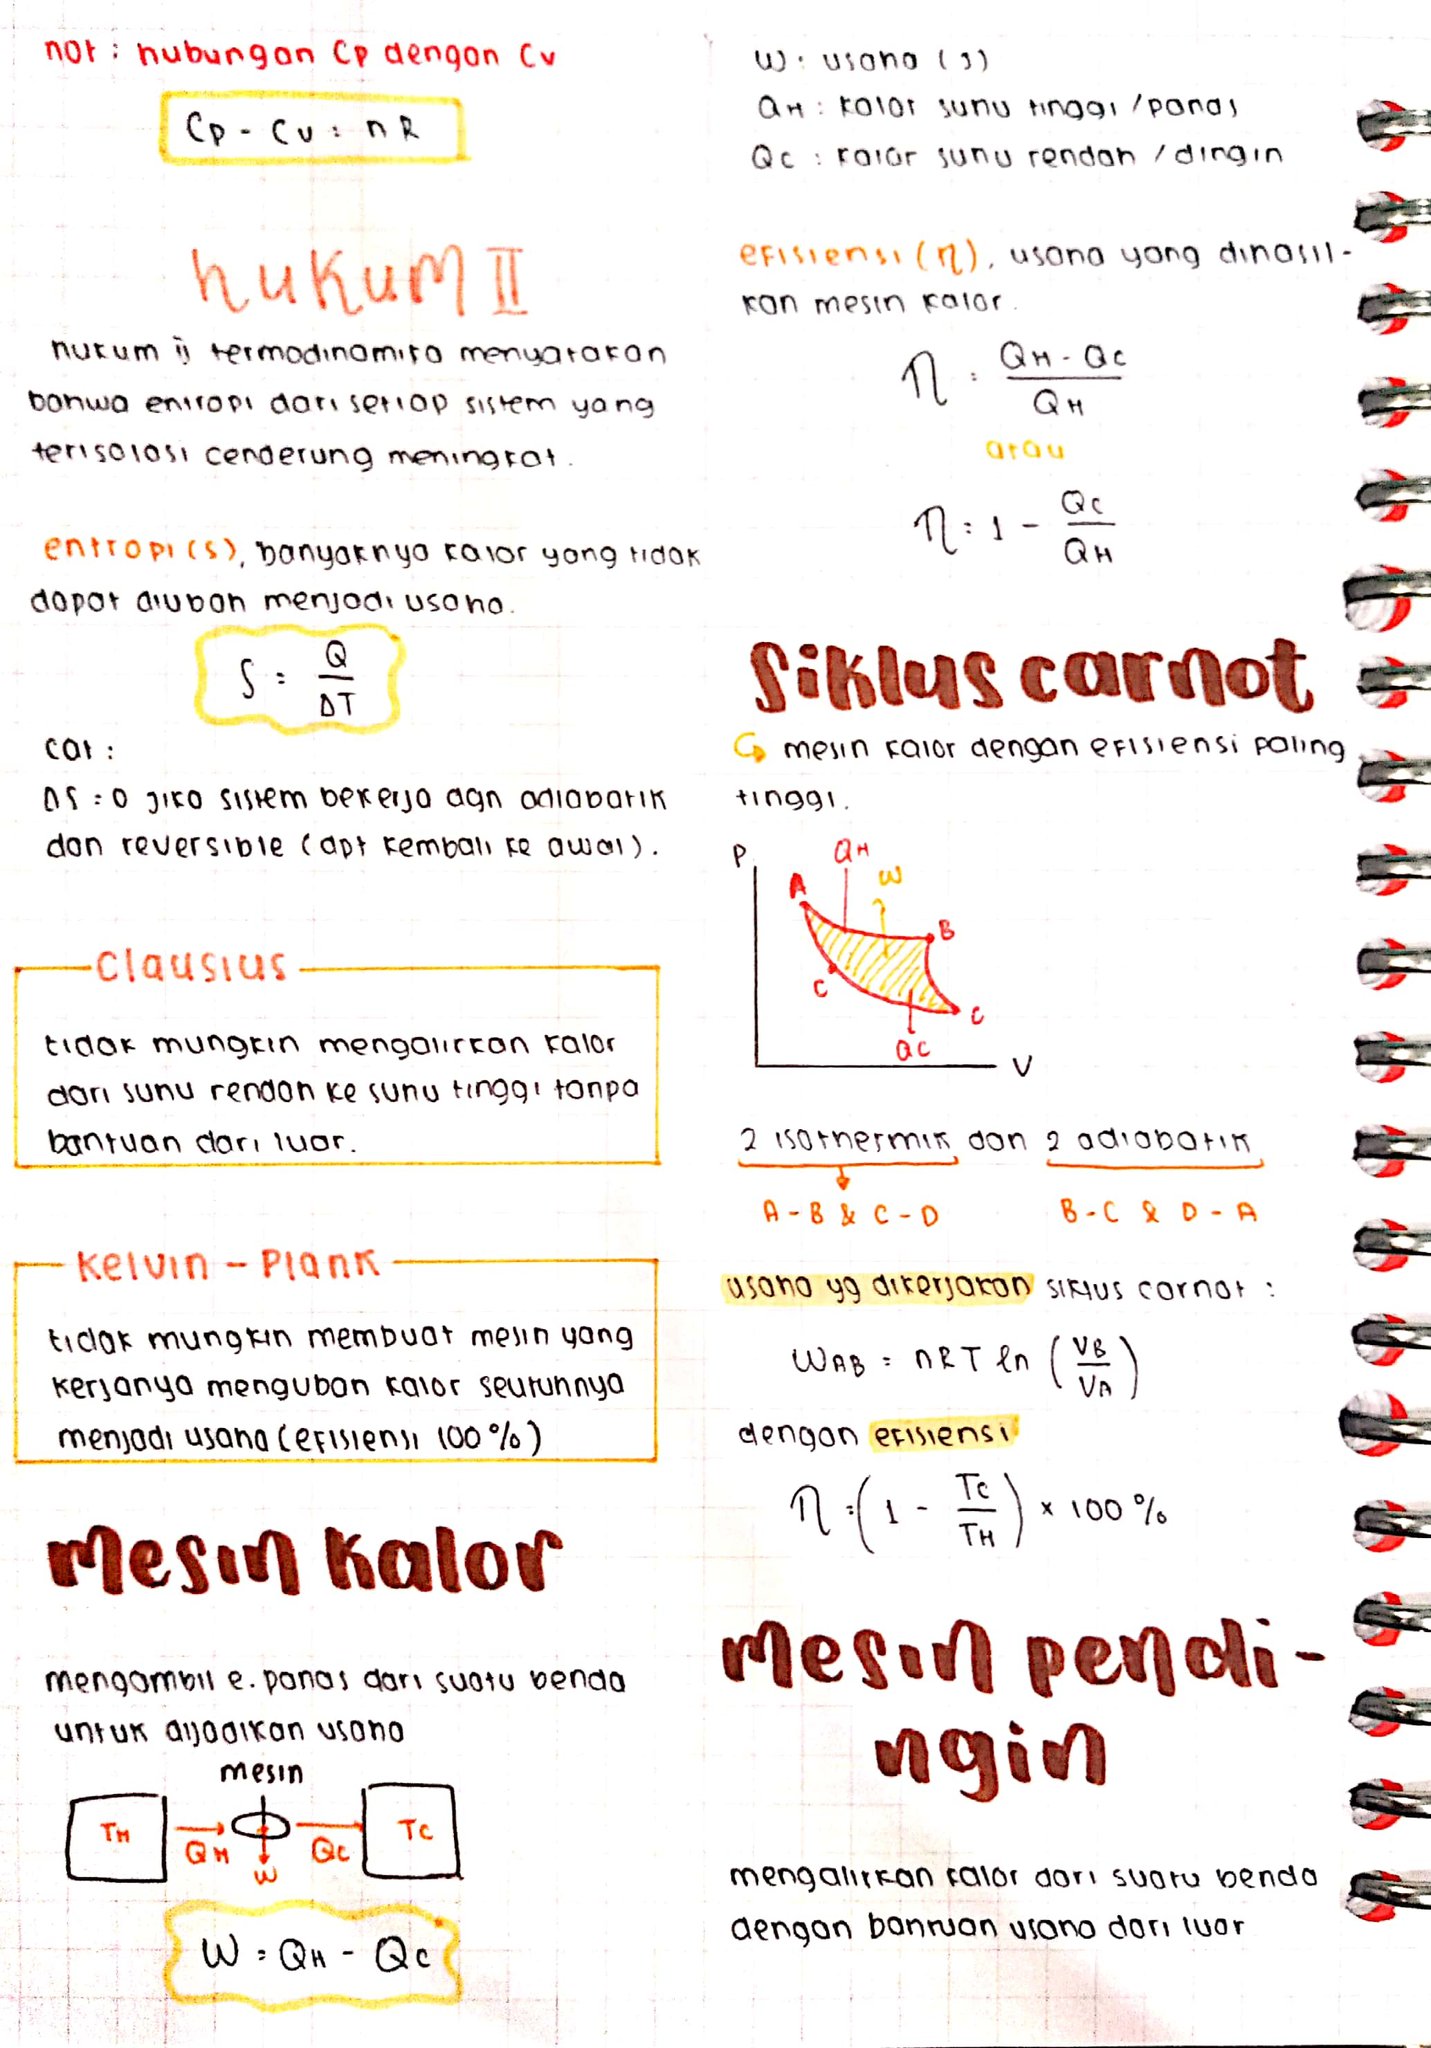 not : hubungan Cp dengan Cv
Cp - Cv = nR
hukum II
hukum ii termodinamika menyatakan
bahwa entropi dari setiap sistem yang
terisolasi cenderung meningkat.
entropi (s), banyaknya kalor yang tidak
dapat diubah menjadi usaha.
S = Q / ΔT
cat :
ΔS = 0 jika sistem bekerja dgn adiabatik
dan reversible (dpt kembali ke awal).
Clausius
tidak mungkin mengalirkan kalor
dari suhu rendah ke suhu tinggi tanpa
bantuan dari luar.
Kelvin - Plank
tidak mungkin membuat mesin yang
kerjanya mengubah kalor seutuhnya
menjadi usaha (efisiensi 100 %)
mesin kalor
mengambil e. panas dari suatu benda
untuk dijadikan usaha
mesin
TH QH W QC TC
W = QH - QC
W : usaha (J)
QH : kalor suhu tinggi / panas
QC : kalor suhu rendah / dingin
efisiensi (η), usaha yang dihasil-
kan mesin kalor.
η = QH - QC / QH
atau
η = 1 - QC / QH
siklus carnot
↳ mesin kalor dengan efisiensi paling
tinggi.
P QH
W
A
B
C
C
QC
V
2 isothermik dan 2 adiabatik
A - B & C - D B - C & D - A
usaha yg dikerjakan siklus carnot :
WAB = nRT ln (VB / VA)
dengan efisiensi
η = (1 - TC / TH) × 100 %
mesin pendi-
ngin
mengalirkan kalor dari suatu benda
dengan bantuan usaha dari luar